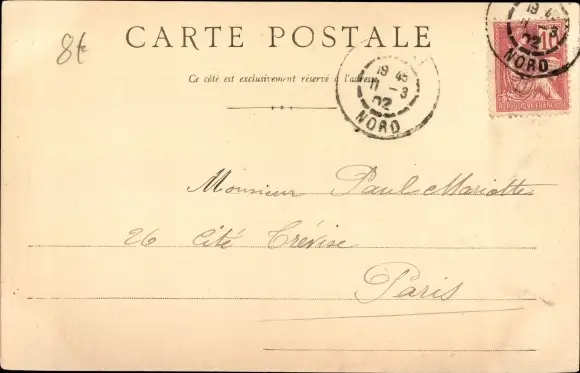 8te
CARTE POSTALE
Ce côté est exclusivement réservé à l'adresse
19 45
11 - 3
02
NORD
19 45
11 - 3
02
NORD
10
REPUBLIQUE FRANCAISE
Monsieur Paul Mariotte
26 Cité Trévise
Paris